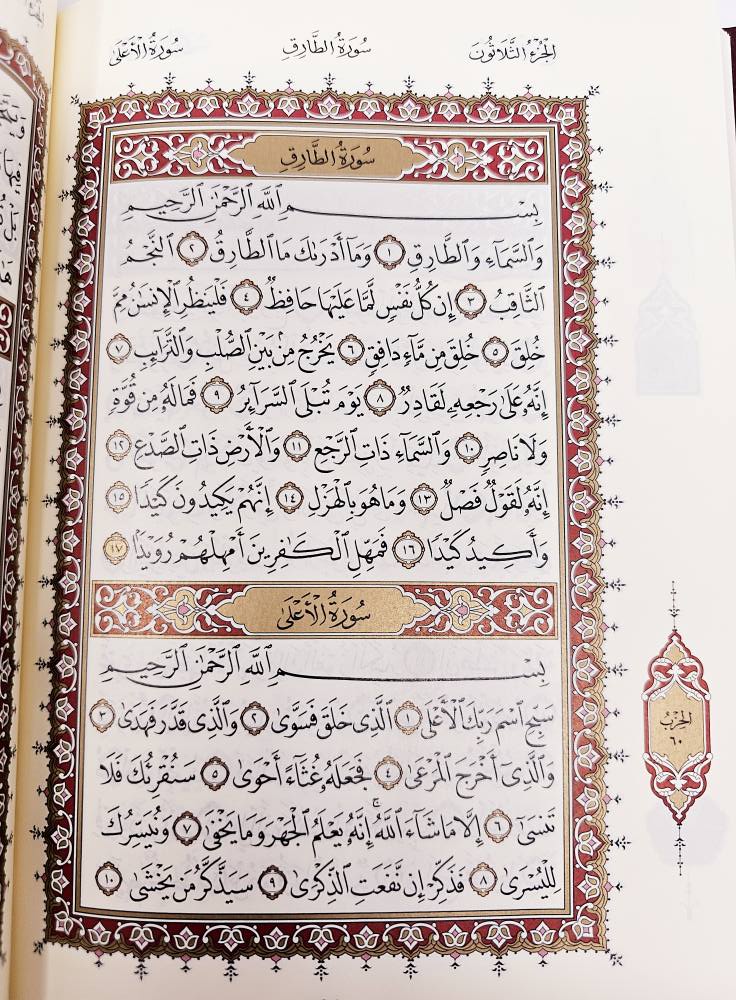 الجزء الثلاثون سورة الطارق سورة الأعلى
سُورَةُ الطَّارِقِ
بِسْمِ ٱللَّهِ ٱلرَّحْمَٰنِ ٱلرَّحِيمِ
وَٱلسَّمَآءِ وَٱلطَّارِقِ ١ وَمَآ أَدْرَىٰكَ مَا ٱلطَّارِقُ ٢ ٱلنَّجْمُ
ٱلثَّاقِبُ ٣ إِن كُلُّ نَفْسٍ لَّمَّا عَلَيْهَا حَافِظٌ ٤ فَلْيَنظُرِ ٱلْإِنسَٰنُ مِمَّ
خُلِقَ ٥ خُلِقَ مِن مَّآءٍ دَافِقٍ ٦ يَخْرُجُ مِنۢ بَيْنِ ٱلصُّلْبِ وَٱلتَّرَآئِبِ ٧
إِنَّهُۥ عَلَىٰ رَجْعِهِۦ لَقَادِرٌ ٨ يَوْمَ تُبْلَى ٱلسَّرَآئِرُ ٩ فَمَا لَهُۥ مِن قُوَّةٍ
وَلَا نَاصِرٍ ١٠ وَٱلسَّمَآءِ ذَاتِ ٱلرَّجْعِ ١١ وَٱلْأَرْضِ ذَاتِ ٱلصَّدْعِ ١٢
إِنَّهُۥ لَقَوْلٌ فَصْلٌ ١٣ وَمَا هُوَ بِٱلْهَزْلِ ١٤ إِنَّهُمْ يَكِيدُونَ كَيْدًا ١٥
وَأَكِيدُ كَيْدًا ١٦ فَمَهِّلِ ٱلْكَٰفِرِينَ أَمْهِلْهُمْ رُوَيْدًۢا ١٧
سُورَةُ الأَعْلَىٰ
بِسْمِ ٱللَّهِ ٱلرَّحْمَٰنِ ٱلرَّحِيمِ
سَبِّحِ ٱسْمَ رَبِّكَ ٱلْأَعْلَى ١ ٱلَّذِى خَلَقَ فَسَوَّىٰ ٢ وَٱلَّذِى قَدَّرَ فَهَدَىٰ ٣
وَٱلَّذِىٓ أَخْرَجَ ٱلْمَرْعَىٰ ٤ فَجَعَلَهُۥ غُثَآءً أَحْوَىٰ ٥ سَنُقْرِئُكَ فَلَا
تَنسَىٰٓ ٦ إِلَّا مَا شَآءَ ٱللَّهُ ۚ إِنَّهُۥ يَعْلَمُ ٱلْجَهْرَ وَمَا يَخْفَىٰ ٧ وَنُيَسِّرُكَ
لِلْيُسْرَىٰ ٨ فَذَكِّرْ إِن نَّفَعَتِ ٱلذِّكْرَىٰ ٩ سَيَذَّكَّرُ مَن يَخْشَىٰ ١٠
الحزب
٦٠